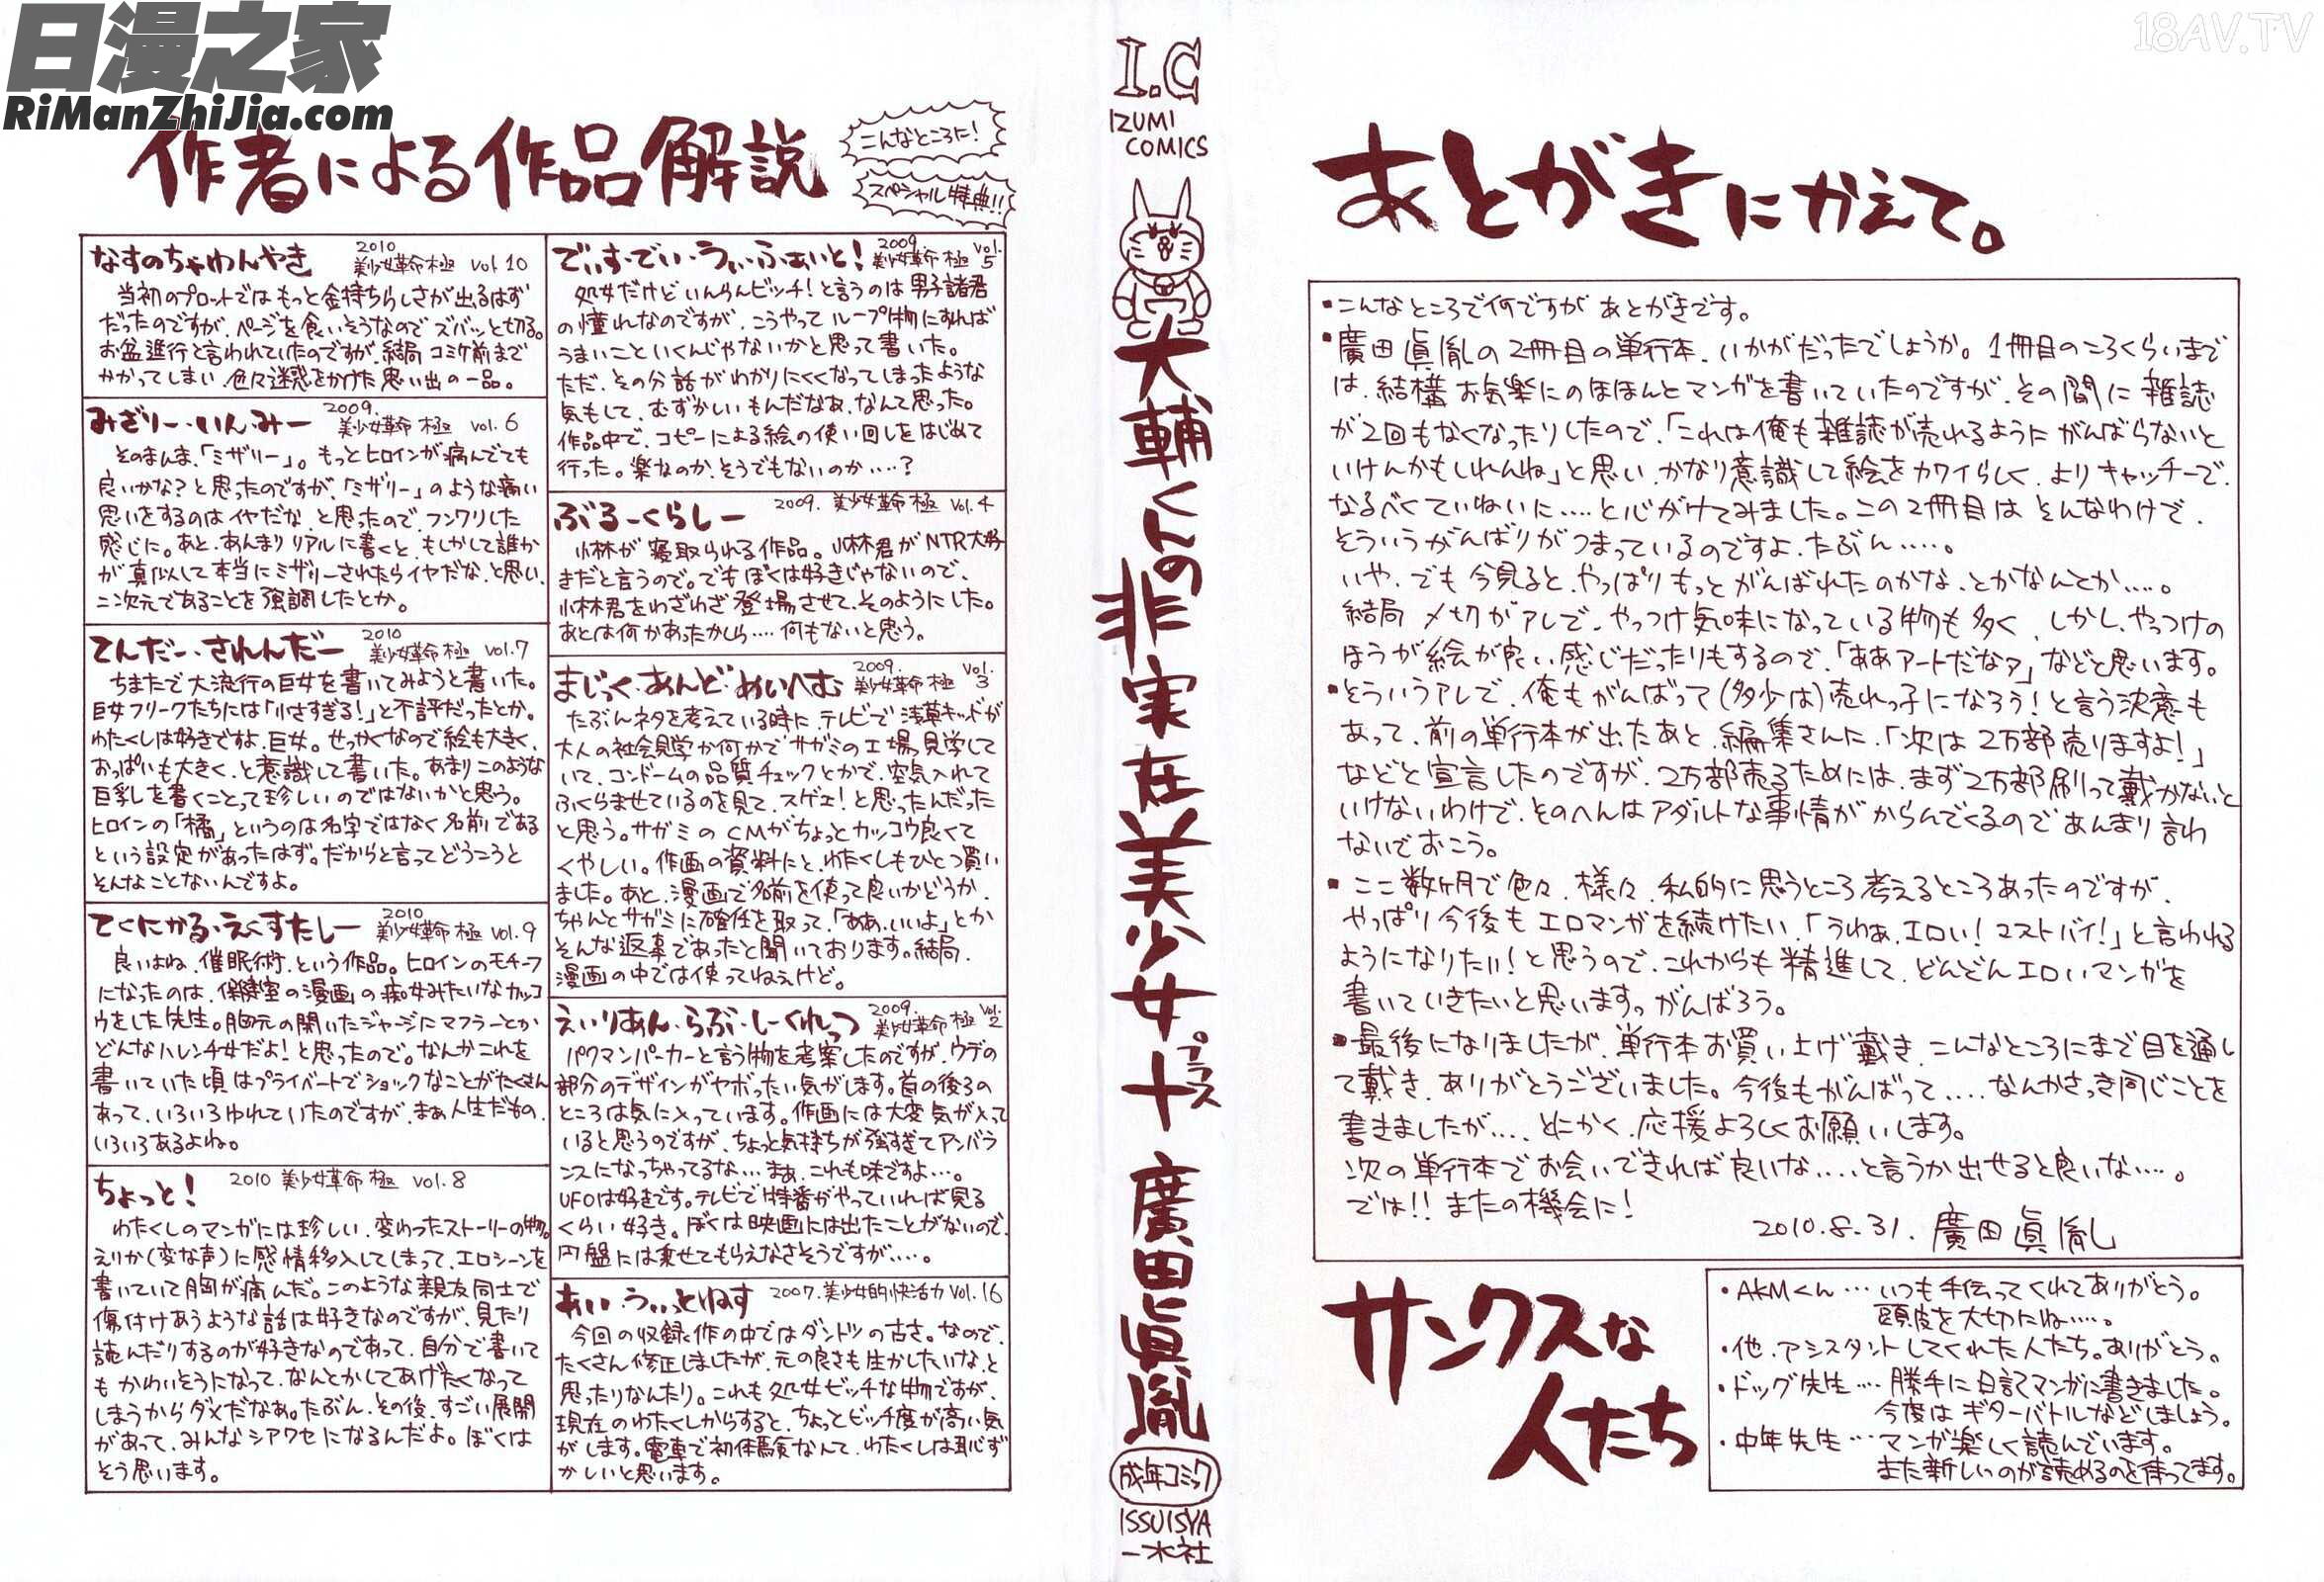 日漫之家
RiManZhiJia.com
18AV.TV
作者による作品解説
こんなところに!
スペシャル特典!!
なすのちゃわんやき
2010
美少女革命 極 vol.10
当初のプロットではもっと金持ちらしさが出るはず
だったのですが、ページを食いそうなのでズバッと切る。
お盆進行と言われていたのですが、結局コミケ前まで
かかってしまい、色々迷惑をかけた思い出の一品。
みざりー・いん・みー
2009.
美少女革命 極 vol.6
そのまんま、「ミザリー」。もっとヒロインが病んでても
良いかな?と思ったのですが、「ミザリー」のような痛い
思いをするのはイヤだな、と思ったので、フンワリした
感じに。あと、あんまりリアルに書くと、もしかして誰か
が真似して本当にミザリーされたらイヤだな、と思い、
二次元であることを強調したとか。
てんだー・されんだー
2010
美少女革命 極 vol.7
ちまたで大流行の巨女を書いてみようと書いた。
巨女フリークたちには「小さすぎる!」と不評だったとか。
わたくしは好きですよ、巨女。せっかくなので絵も大きく、
おっぱいも大きく、と意識して書いた。あまりこのような
巨乳を書くことって珍しいのではないかと思う。
ヒロインの「橘」というのは名字ではなく名前である
という設定があったはず。だからと言ってどうこうと
そんなことないんですよ。
てくにかる・えくすたしー
2010
美少女革命 極 vol.9
良いよね、催眠術、という作品。ヒロインのモチーフ
になったのは、保健室の漫画の痴女みたいなカッコ
ウをした先生。胸元の開いたジャージにマフラーとか
どんなハレンチ女だよ!と思ったので。なんかこれを
書いていた頃はプライベートでショックなことがたくさん
あって、いろいろゆれていたのですが、まぁ人生だもの、
いろいろあるよね。
ちょっと!
2010 美少女革命 極 vol.8
わたくしのマンガには珍しい、変わったストーリーの物。
えりか(変な声)に感情移入してしまって、エロシーンを
書いていて胸が痛んだ。このような親友同士で
傷付けあうような話は好きなのですが、見たり
読んだりするのが好きなのであって、自分で書いて
もかわいそうになって、なんとかしてあげたくなって
しまうからダメだなぁ。たぶん、その後、すごい展開
があって、みんなシアワセになるんだよ。ぼくは
そう思います。
でぃす・でぃ・うぃ・ふぁいと!
2009.
美少女革命 極 vol.5
処女だけどいんらんビッチ!と言うのは男子諸君
の憧れなのですが、こうやってループ物にすれば
うまいこといくんじゃないかと思って書いた。
ただ、その分話がわかりにくくなってしまったような
気もして、むずかしいもんだなぁ、なんて思った。
作品中で、コピーによる絵の使い回しをはじめて
行った。楽なのか、そうでもないのか‥‥?
ぶるーくらしー
2009. 美少女革命 極 Vol.4
小林が寝取られる作品。小林君がNTR大好
きだと言うので。でもぼくは好きじゃないので、
小林君をわざわざ登場させて、そのようにした。
あとは何かあったかしら‥‥何もないと思う。
まじっく・あんど・めいへむ
2009.
美少女革命 極 Vol.3
たぶんネタを考えている時に、テレビで浅草キッドが
大人の社会見学か何かでサガミの工場見学して
いて、コンドームの品質チェックとかで、空気入れて
ふくらませているのを見て、スゲェ!と思ったんだった
と思う。サガミのCMがちょっとカッコウ良くて
くやしい。作画の資料にと、わたくしもひとつ買い
ました。あと、漫画で名前を使って良いかどうか、
ちゃんとサガミに確任を取って、「ああ、いいよ」とか
そんな返事であったと聞いております。結局、
漫画の中では使ってねぇけど。
えいりあん・らぶ・しーくれっつ
2009.
美少女革命 極 Vol.2
パクマンパーカーと言う物を考案したのですが、ウデの
部分のデザインがヤボったい気がします。首の後ろの
ところは気に入っています。作画には大変気が入って
いると思うのですが、ちょっと気持ちが強すぎてアンバラ
ンスになっちゃってるな…まぁ、これも味ですよ…。
UFOは好きです。テレビで特番がやっていれば見る
くらい好き。ぼくは映画には出たことがないので、
円盤には乗せてもらえなさそうですが‥‥。
あい・うぃっとねす
2007.美少女的快活力 Vol.16
今回の収録作の中ではダントツの古さ。なので、
たくさん修正しましたが、元の良さも生かしたいな、と
思ったりなんたり。これも処女ビッチな物ですが、
現在のわたくしからすると、ちょっとビッチ度が高い気
がします。電車で初体験なんて、わたくしは恥ず
かしいと思います。
I.C
IZUMI
COMICS
大輔くんの非実在美少女十
プラス
廣田眞胤
成年コミック
ISSUISYA
一水社
あとがきにかえて。
・こんなところで何ですが あとがきです。
・廣田眞胤の2冊目の単行本、いかがだったでしょうか。1冊目のころくらいまで
は、結構お気楽にのほほんとマンガを書いていたのですが、その間に雑誌
が2回もなくなったりしたので、「これは俺も雑誌が売れるようにがんばらないと
いけんかもしれんね」と思い、かなり意識して絵をカワイらしく、よりキャッチーで、
なるべくていねいに‥‥と心がけてみました。この2冊目はそんなわけで、
そういうがんばりがつまっているのですよ、たぶん‥‥。
いや、でも今見ると、やっぱりもっとがんばれたのかな、とかなんとか‥‥。
結局〆切がアレで、やっつけ気味になっている物も多く、しかし、やっつけの
ほうが絵が良い感じだったりもするので、「ああアートだなァ」などと思います。
・そういうアレで、俺もがんばって(多少は)売れっ子になろう!と言う決意も
あって、前の単行本が出たあと、編集さんに、「次は2万部売りますよ!」
などと宣言したのですが、2万部売るためには、まず2万部刷って戴かないと
いけないわけで、そのへんはアダルトな事情がからんでくるのであんまり言わ
ないでおこう。
・ここ数ヶ月で色々、様々、私的に思うところ考えるところあったのですが、
やっぱり今後もエロマンガを続けたい、「うわぁ、エロい!マストバイ!」と言われる
ようになりたい!と思うので、これからも精進して、どんどんエロいマンガを
書いていきたいと思います。がんばろう。
・最後になりましたが、単行本お買い上げ戴き、こんなところにまで目を通し
て戴き、ありがとうございました。今後もがんばって‥‥なんかさっき同じことを
書きましたが‥‥、とにかく、応援よろしくお願いします。
次の単行本でお会いできれば良いな‥‥と言うか出せると良いな‥‥。
では!! またの機会に!
2010.8.31. 廣田眞胤
サンクスな
人たち
・AKMくん…いつも手伝ってくれてありがとう。
頭皮を大切にね‥‥。
・他、アシスタントしてくれた人たち。ありがとう。
・ドッグ先生…勝手に日記マンガに書きました。
今度はギターバトルなどしましょう。
・中年先生…マンガ楽しく読んでいます。
また新しいのが読めるのを待ってます。